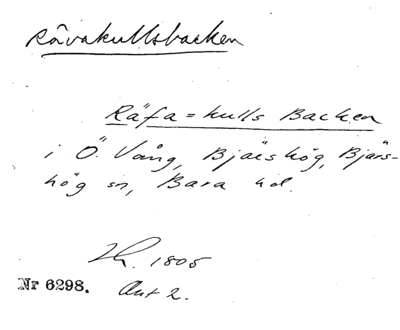 Råvakullsbacken
Räfa=kulls Backen
i Ö. Vång, Bjärshög, Bjärs-
hög sn, Bara hd.
1805
Nr 6298. Akt 2.